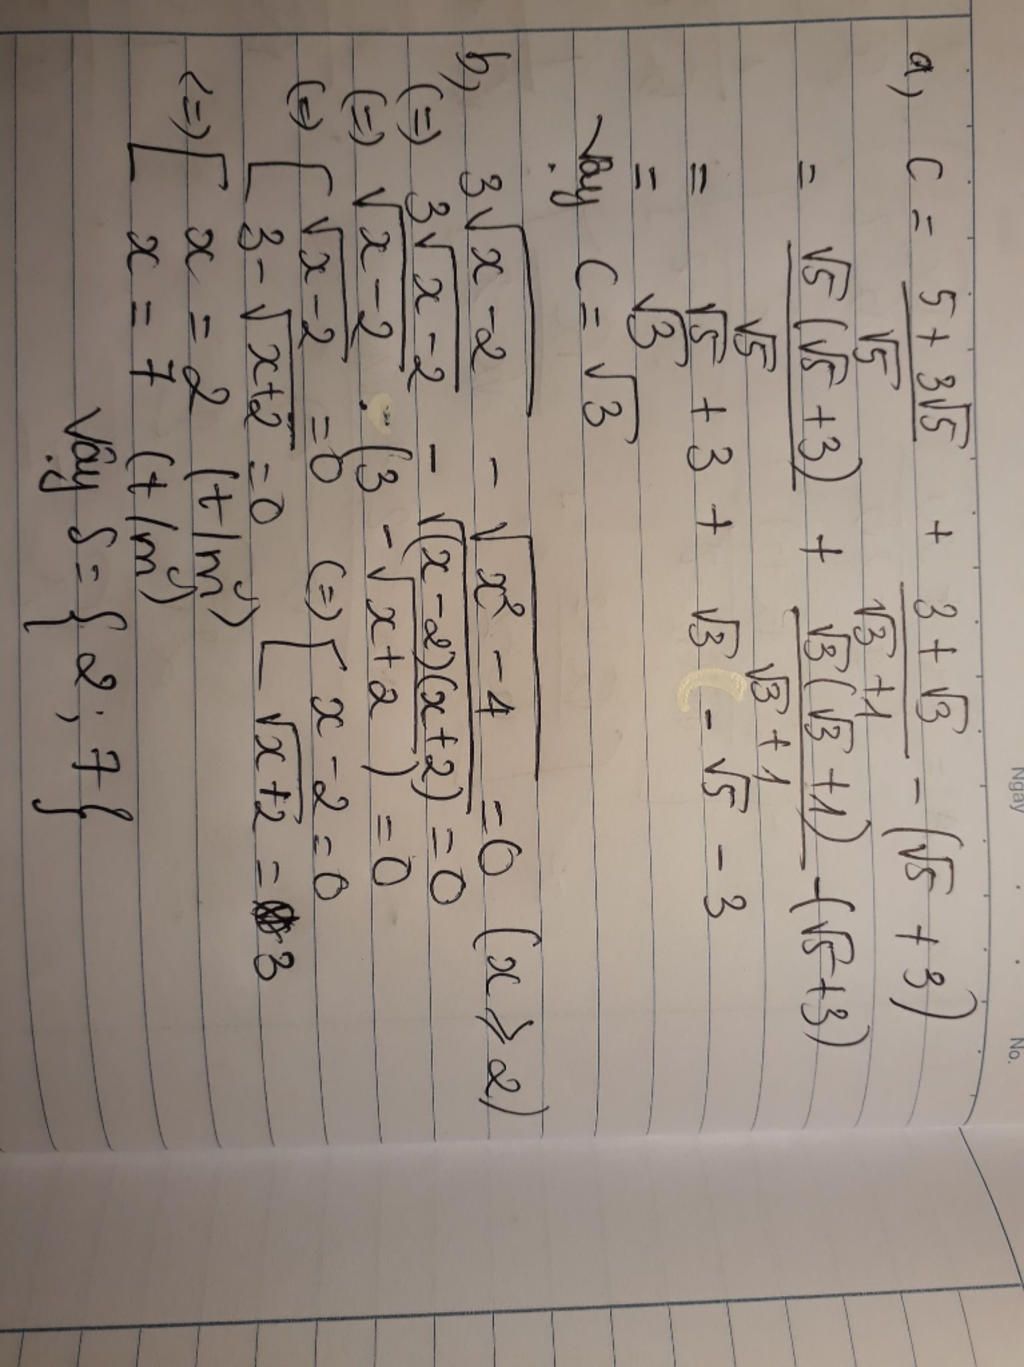 Ngày
No.
a, C = (5 + 3√5)/√5 + (3 + √3)/(√3 + 1) - (√5 + 3)
= √5(√5 + 3)/√5 + √3(√3 + 1)/(√3 + 1) - (√5 + 3)
= √5 + 3 + √3 - √5 - 3
= √3
Vậy C = √3
b, 3√(x - 2) - √(x² - 4) = 0 (x ⩾ 2)
(=) 3√(x - 2) - √((x - 2)(x + 2)) = 0
(=) √(x - 2) . (3 - √(x + 2)) = 0
(=) [ √(x - 2) = 0 (=) [ x - 2 = 0
3 - √(x + 2) = 0 √(x + 2) = 3
<=> [ x = 2 (t/m)
[ x = 7 (t/m)
Vậy S = { 2 ; 7 }